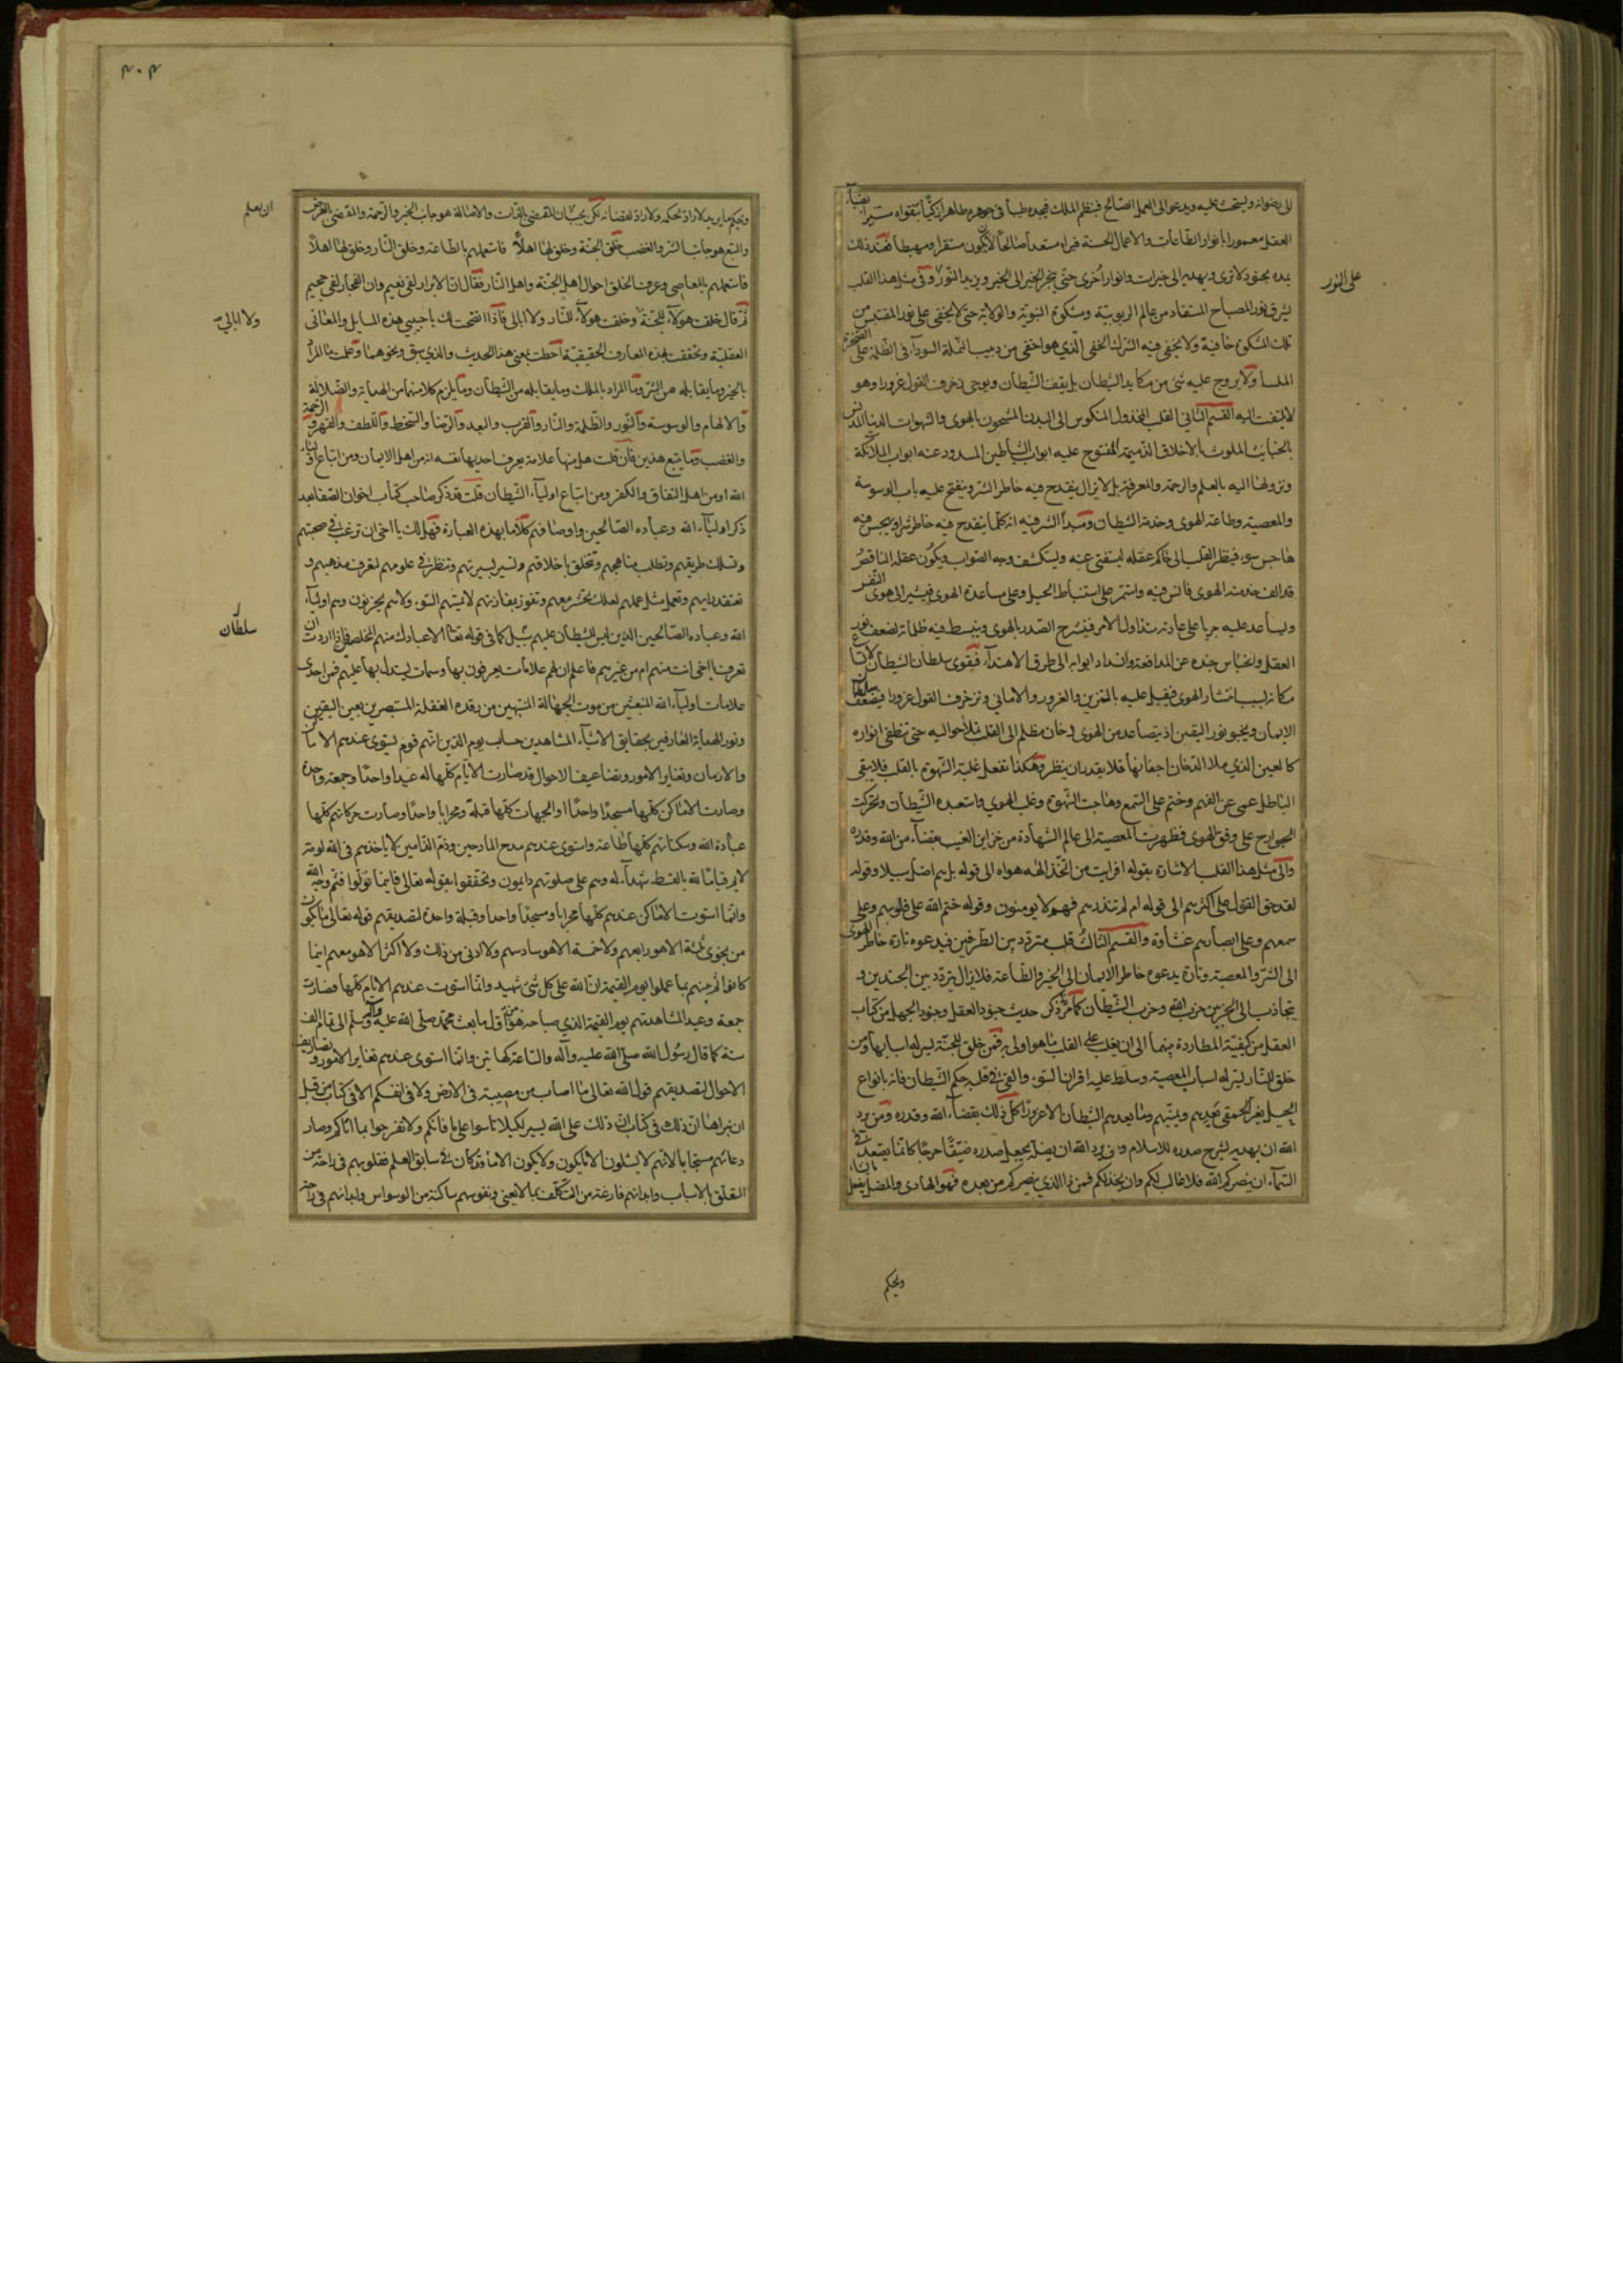 الى رضوانه ويستحث عليه ويدعو الى العمل الصالح فينظر الملك فيجده طيبا في جوهره طاهرا زكيا بتقواه مستنيرا بضياء
العقل معمورا بانوار الطاعات والاعمال الحسنة فيراه مستعدا صالحا لان يكون مستقرا ومهبطا فعند ذلك
يمده بجنود لا ترى ويهديه الى خيرات وانوار اخرى حتى ينجر الخير الى الخير ويزيد النور وفي مثل هذا القلب
على النور
يشرق نور المصباح المستفاد من عالم الربوبية ومشكوة النبوية والولاية حتى لا يخفى على نور المقتبس من
تلك المشكوة خافية ولا يخفى فيه الشرك الخفي الذي هو اخفى من دبيب النملة السوداء في الظلمة على الصخرة
الملسا ولا يروج عليه شئ من مكايد الشيطان بل يقف الشيطان ويوحي زخرف القول غرورا وهو
لا يلتفت اليه القسم الثاني القلب المخذول المنكوس الى البدن المشحون بالهوى والشهوات الدنيا المدنس
بالخبائث الملوث بالاخلاق الذميمة المفتوح عليه ابواب الشياطين المسدود عنه ابواب الملائكة
ونزولها اليه بالعلم والرحمة والمعرفة بل لا يزال ينقدح فيه خاطر الشر وينفتح عليه باب الوسوسة
والمعصية وطاعة الهوى وخدمة الشيطان ومبدأ الشر فيه انه كلما ينقدح فيه خاطر شر او يهجس فيه
هاجس سوء فينظر القلب الى حاكم عقله ليستفتي عنه ويستكشف وجه الصواب ويكون عقله الناقص
قد الف خدمة الهوى فانس فيه واستمر على استنباط الحيل وعلى مساعدة الهوى فيشير الى هوى النفس
ويساعد عليه جريا على عادته في تداول الامر فينشرح الصدر بالهوى وينبسط فيه ظلماته لضعف نور
العقل وانحباس جنده عن المدافعة وانسداد ابوابه الى طرق الاهتداء فيقوى سلطان الشيطان لاتساع
مكانه بسبب انتشار الهوى فيقبل عليه بالتزيين والغرور والاماني وتزخرف القول غرورا فيضعف سلطان
الايمان ويخبو نور اليقين اذ يتصاعد من الهوى دخان مظلم الى القلب تملأ حواليه حتى تنطفي انواره
كالعين الذي ملأ الدخان اجفانها فلا يقدر ان ينظر وهكذا تفعل غلبة الشهوة بالقلب فلا يبقى
الباطل عمى عن الفهم وختم على السمع وهاجت الشهوة وغلب الهوى واستعبده الشيطان وتحركت
الجوارح على وفق الهوى فظهرت المعصية الى عالم الشهادة من خزاين الغيب بقضاء من الله وقدره
والى مثل هذا القلب الاشارة بقوله افرايت من اتخذ الهه هواه الى قوله بل هم اضل سبيلا وقوله
لقد حق القول على اكثرهم الى قوله ام لم تنذرهم فهم لا يومنون وقوله ختم الله على قلوبهم وعلى
سمعهم وعلى ابصارهم غشاوة والقسم الثالث قلب متردد بين الطرفين فيدعوه تارة خاطر الهوى
الى الشر والمعصية وتارة يدعوه خاطر الايمان الى الخير والطاعة فلا يزال يتردد بين الجندين و
يتجاذب الى الحزبين حزب الله وحزب الشيطان كما مر ذكره حديث جنود العقل وجنود الجهل من كتاب
العقل من كيفية المطاردة بينهما الى ان يغلب على القلب ما هو اولى به فمن خلق للجنة يسر له اسبابها ومن
خلق للنار يسر له اسباب المعصية وسلط عليه اقران السوء والقى في قلبه حكم الشيطان فانه بانواع
الحيل يغر الحمقى يعدهم ويمنيهم وما يعدهم الشيطان الا غرورا كل ذلك بقضاء الله وقدره ومن يرد
الله ان يهديه يشرح صدره للاسلام ومن يرد الله ان يضله يجعل صدره ضيقا حرجا كانما يصعد في
السماء ان ينصركم الله فلا غالب لكم وان يخذلكم فمن ذا الذي ينصركم من بعده فهو الهادي والمضل يفعل ما يشاء
ويحكم
ويحكم ما يريد لا راد لحكمه ولا راد لقضائه لكن يجب ان المقضي بالذات والاصالة هو جانب الخير والرحمة والمقضي بالعرض
ان يعلم
والتبع هو جانب الشر والغضب خلق الجنة وخلق لها اهلا فاستعملهم بالطاعة وخلق النار وخلق لها اهلا
فاستعملهم بالمعاصي وعرف الخلق احوال اهل الجنة واهل النار فقال ان الابرار لفي نعيم وان الفجار لفي جحيم
ثم قال خلقت هولاء للجنة وخلقت هولاء للنار ولا ابالي فاذا اتضحت لك يا حبيبي هذه المسايل والمعاني
ولا ابالي
العقلية وتحققت بهذه المعارف الحقيقية احطت بمعنى هذا الحديث والذي سبق ونحوهما وعلمت ما المراد
بالخير وما يقابله من الشر وما المراد بالملك وما يقابله من الشيطان وما يلزم كلا منهما من الهداية والضلالة
والالهام والوسوسة والنور والظلمة والنار والقرب والبعد والرضا والسخط واللطف والقهر والرحمة
والغضب وما يتبع هذين فان قلت هل منها علامة يعرف احد بها نفسه انه من اهل الايمان ومن اتباع اولياء
الله او من اهل النفاق والكفر ومن اتباع اولياء الشيطان قلت قد ذكر صاحب كتاب اخوان الصفا بعد
ذكر اولياء الله وعباده الصالحين واوصافهم كلاما بهذه العبارة فهل لك يا اخى ان ترغب في صحبتهم
وتسلك طريقهم وتطلب مناهجهم وتتخلق باخلاقهم وتسير بسيرتهم وتنظر في علومهم لتعرف مذهبهم و
تعتقد رايهم وتعمل مثل عملهم لعلك تحشر معهم وتفوز بمفازتهم لا يمسهم السوء ولا هم يحزنون وهم اولياء
الله وعباده الصالحين الذين ليس للشيطان عليهم سبيل كما في قوله تعالى الا عبادك منهم المخلصين فاذا اردت ان
سلطان
تعرف يا اخي انت منهم ام من غيرهم فاعلم ان لهم علامات يعرفون بها وسمات يستدل بها عليهم فمن احدى
علامات اولياء الله المنبعثين من موت الجهالة المنتبهين من رقدة الغفلة المستبصرين بعين اليقين
ونور الهداية العارفين بحقايق الاشياء المشاهدين حساب يوم الدين انهم قوم يستوى عندهم الاماكن
والازمان وتغاير الامور وتصاريف الاحوال قد صارت الايام كلها له عيدا واحدا وجمعة واحدة
وصارت الاماكن كلها مسجدا واحدا والجهات كلها قبلة ومحرابا واحدا وصارت حركاتهم كلها
عبادة الله وسكناتهم كلها طاعة واستوى عندهم مدح المادحين وذم الذامين لا ياخذهم في الله لومة
لايم قياما لله بالقسط شهداء له وهم على صلوتهم دايمون وتحققوا بقوله تعالى فاينما تولوا فثم وجه الله
وانما استوت الاماكن عندهم كلها محرابا ومسجدا واحدا وقبلة واحدة لتصديقهم قوله تعالى ما يكون
من نجوى ثلثة الا هو رابعهم ولا خمسة الا هو سادسهم ولا ادنى من ذلك ولا اكثر الا هو معهم اينما
كانوا ثم ينبئهم بما عملوا يوم القيمة ان الله على كل شئ شهيد وانما استوت عندهم الايام كلها وصارت
جمعة وعيدا لمشاهدتهم يوم القيمة الذي صباحه هو من اول ما بعث محمد صلى الله عليه وآله وسلم الى تمام الف
سنة كما قال رسول الله صلى الله عليه وآله والساعة كهاتين وانما استوى عندهم تغاير الامور وتصاريف
الاحوال لتصديقهم قول الله تعالى ما اصاب من مصيبة في الارض ولا في انفسكم الا في كتاب من قبل
ان نبراها ان ذلك في كتاب ان ذلك على الله يسير لكيلا تاسوا على ما فاتكم ولا تفرحوا بما اتاكم وصار
دعائهم مستجابا لانهم لا يسئلون الا ما يكون ولا يكون الا ما قد كان في سابق العلم فقلوبهم في راحة من
التعلق بالاسباب وابدانهم فارغة من التكلف بما لا يعني ونفوسهم ساكنة من الوسواس وابدانهم في راحة